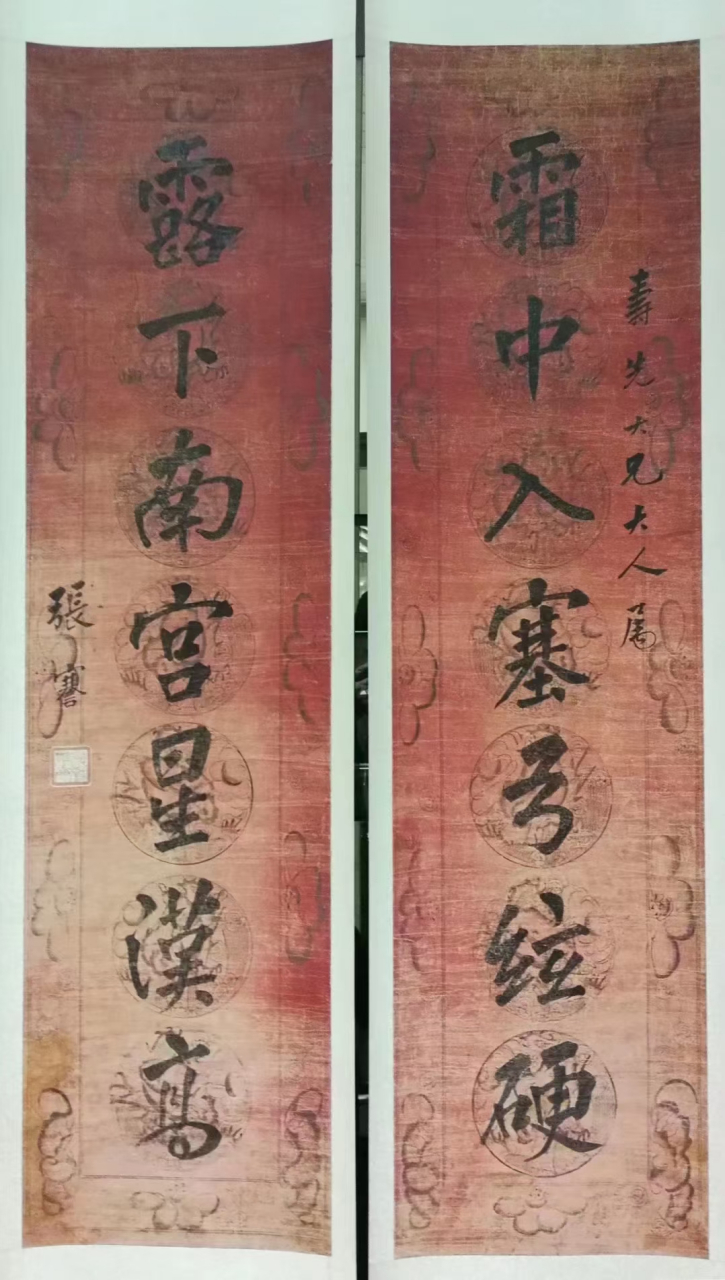 霜中入塞弓弦硬
壽先大兄大人屬
露下南宮星漢高
張謇